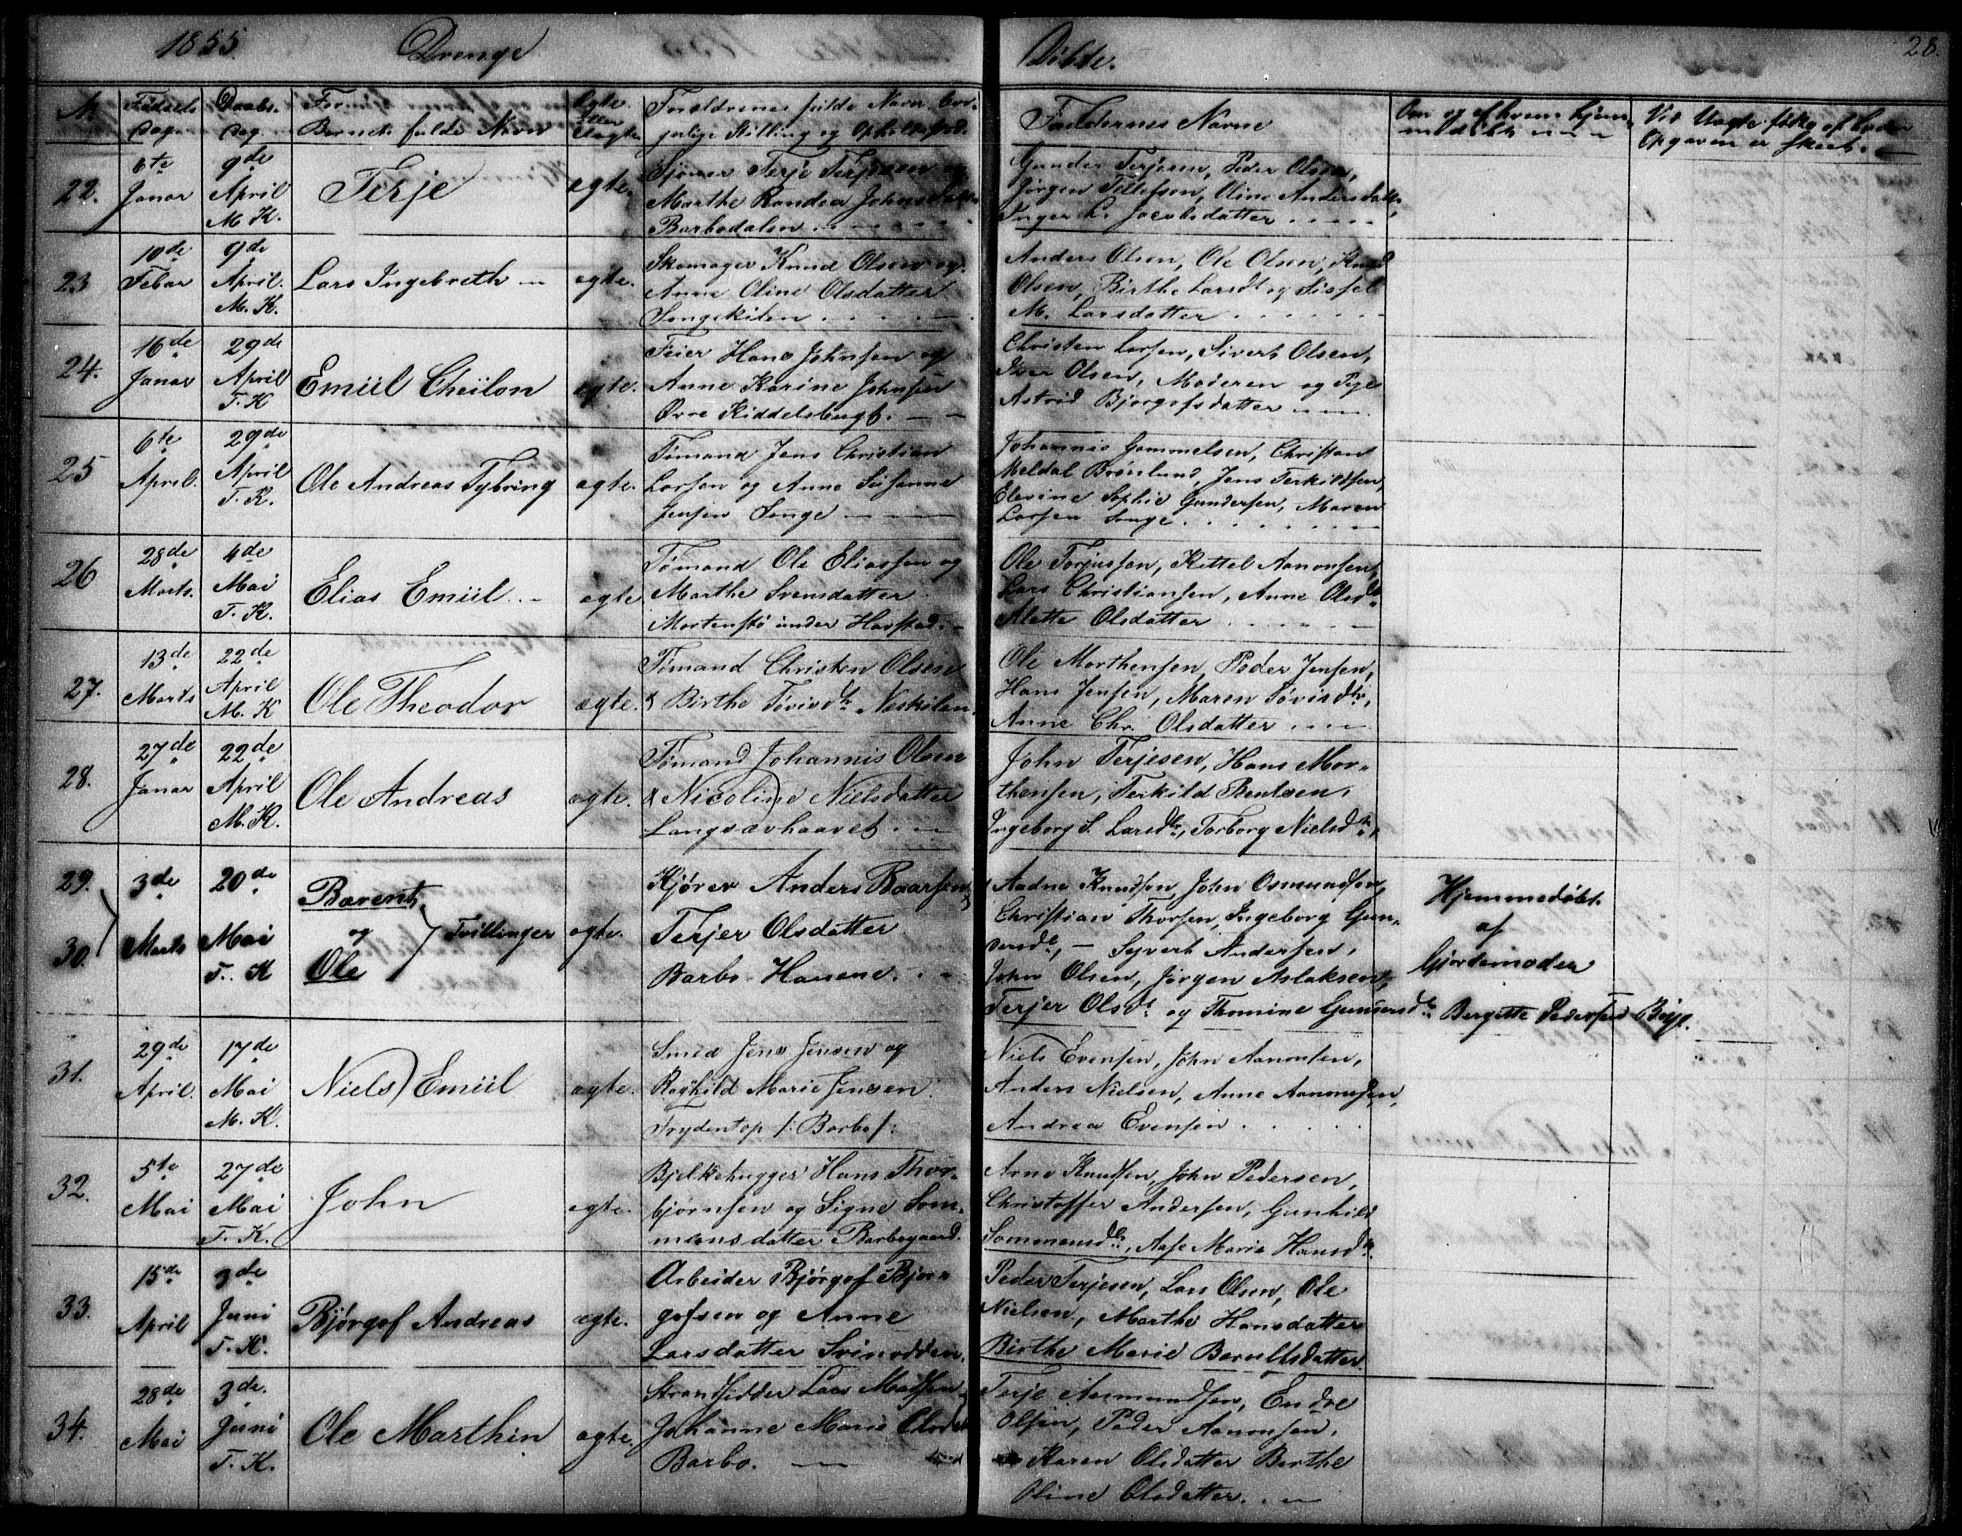 1855. Drenge Döbte. 28.
№ Fødsels Dag. Daabs Dag. Barnets fulde Navn Ægte eller Uægte Forældrenes fulde Navn, bor-
gerlige Stilling og Opholdssted. Faddernes Navne Om og af hvem hjem-
medöbt
22. 6te Januar 9de April M. K. Terje ægte.
Terje Terjesen og
Marthe Randea Johnsdatter
Barbodalen
Gunder Terjesen, Peder Olsen,
Jörgen Tellefsen, Oline Andersdatter,
Inger L. Jacobsdatter
23 10de Febar 9de April. M. K. Lars Ingebreth ægte.
Skomager Knud Olsen og
Anne Oline Olsdatter
Songekilen
Anders Olsen, Ole Olsen, Knud
Olsen, Birthe Larsdt og Sissel
M. Larsdatter
24. 16de Januar 29de April T. K Emiil Cheilon ægte.
Feier Hans Johnsen og
Anne Karine Johnsen
Øvre Kiddelsbugt.
Christen Larsen, Sivert Olsen,
Iver Olsen, Moderen og Pige
Astrid Bjorgofsdatter
25 6te April. 29de April T. K. Ole Andreas Tybring ægte.
Tömand Jens Christian
Larsen og Anne Susanne
Jensen Songe
Johannis Gommelsen, Christian
Meldal Brönlund, Jens Terkildsen,
Elevine Sophie Gundersen, Maren
Larsen Songe
26 28de Marts. 4de Mai T. K. Elias Emiil ægte
Tömand Ole Eliassen og
Marthe Svensdatter
Mortenstö under Havstad.
Ole Torjussen, Kittel Aanonsen,
Lars Christiansen, Anne Olsdt
Mette Olsdatter
27. 13de Marts 22de April M. K Ole Theodor ægte.
Tömand Christen Olsen
& Birthe Tövisdtr Neskilen
Ole Morthensen, Peder Jensen,
Hans Jensen, Maren Tövisdtr,
Anne Chr. Olsdatter
28. 27de Januar 22de April M. K. Ole Andreas ægte.
Tömand Johannis Olsen
& Nicoline Nielsdatter
Langsævhaavet
John Terjesen, Hans Mor-
thensen, Terkild Bentsen,
Ingeborg S. Larsdtr, Torborg Nielsdtr,
29. 30. 3de Marts 20de Mai T. K Barent og Ole Tvillinger ægte.
Kjörer Anders Baarsen &
Terjer Olsdatter
Barbo-Hauene.
Aadne Knudsen, John Osmundsen,
Christian Thorsen, Ingeborg Gun-
dersdt, — Syvert Andersen,
John Olsen, Jörgen Aslaksen,
Terjer Olsdt og Thomine Gundersdtr
Hjemmedöbt
af
Gjordemoder
Bergitte Pedersen Bije.
31. 29de April. 17de Mai M. K. Niels Emiil ægte.
Smed Jens Jensen og
Raghild Marie Jensen
Frydentop /: Barbo /:
Niels Evensen, John Aanonsen,
Anders Nielsen, Anne Aanonsen,
Andrea Evensen
32. 5te Mai 27de Mai T. K. John ægte.
Bjelkehugger Hans Thor-
bjørnsen og Signe Som-
mensdatter Barbogaard.
Arne Knudsen, John Pedersen,
Christoffer Andersen, Gunhild
Sommensdtr, Aase Marie Hansdtr
33. 15de April 3de Juni T. K. Bjørgof Andreas ægte.
Arbeider Bjørgof Bjør-
gofsen og Anne
Larsdatter Svinodden.
Peder Terjesen, Lars Olsen, Ole
Nielsen, Marthe Hansdatter
Birthe Marie Berulfsdatter
34. 28de Mai 3de. Juni T. K. Ole Marthin ægte.
Strandsidder Lars Madsen
Johanne Marie Olsdt
Barbo.
Terje Asmundsen, Endre
Olsen, Peder Aanonsen,
Karen Olsdatter Berthe
Oline Olsdatter.